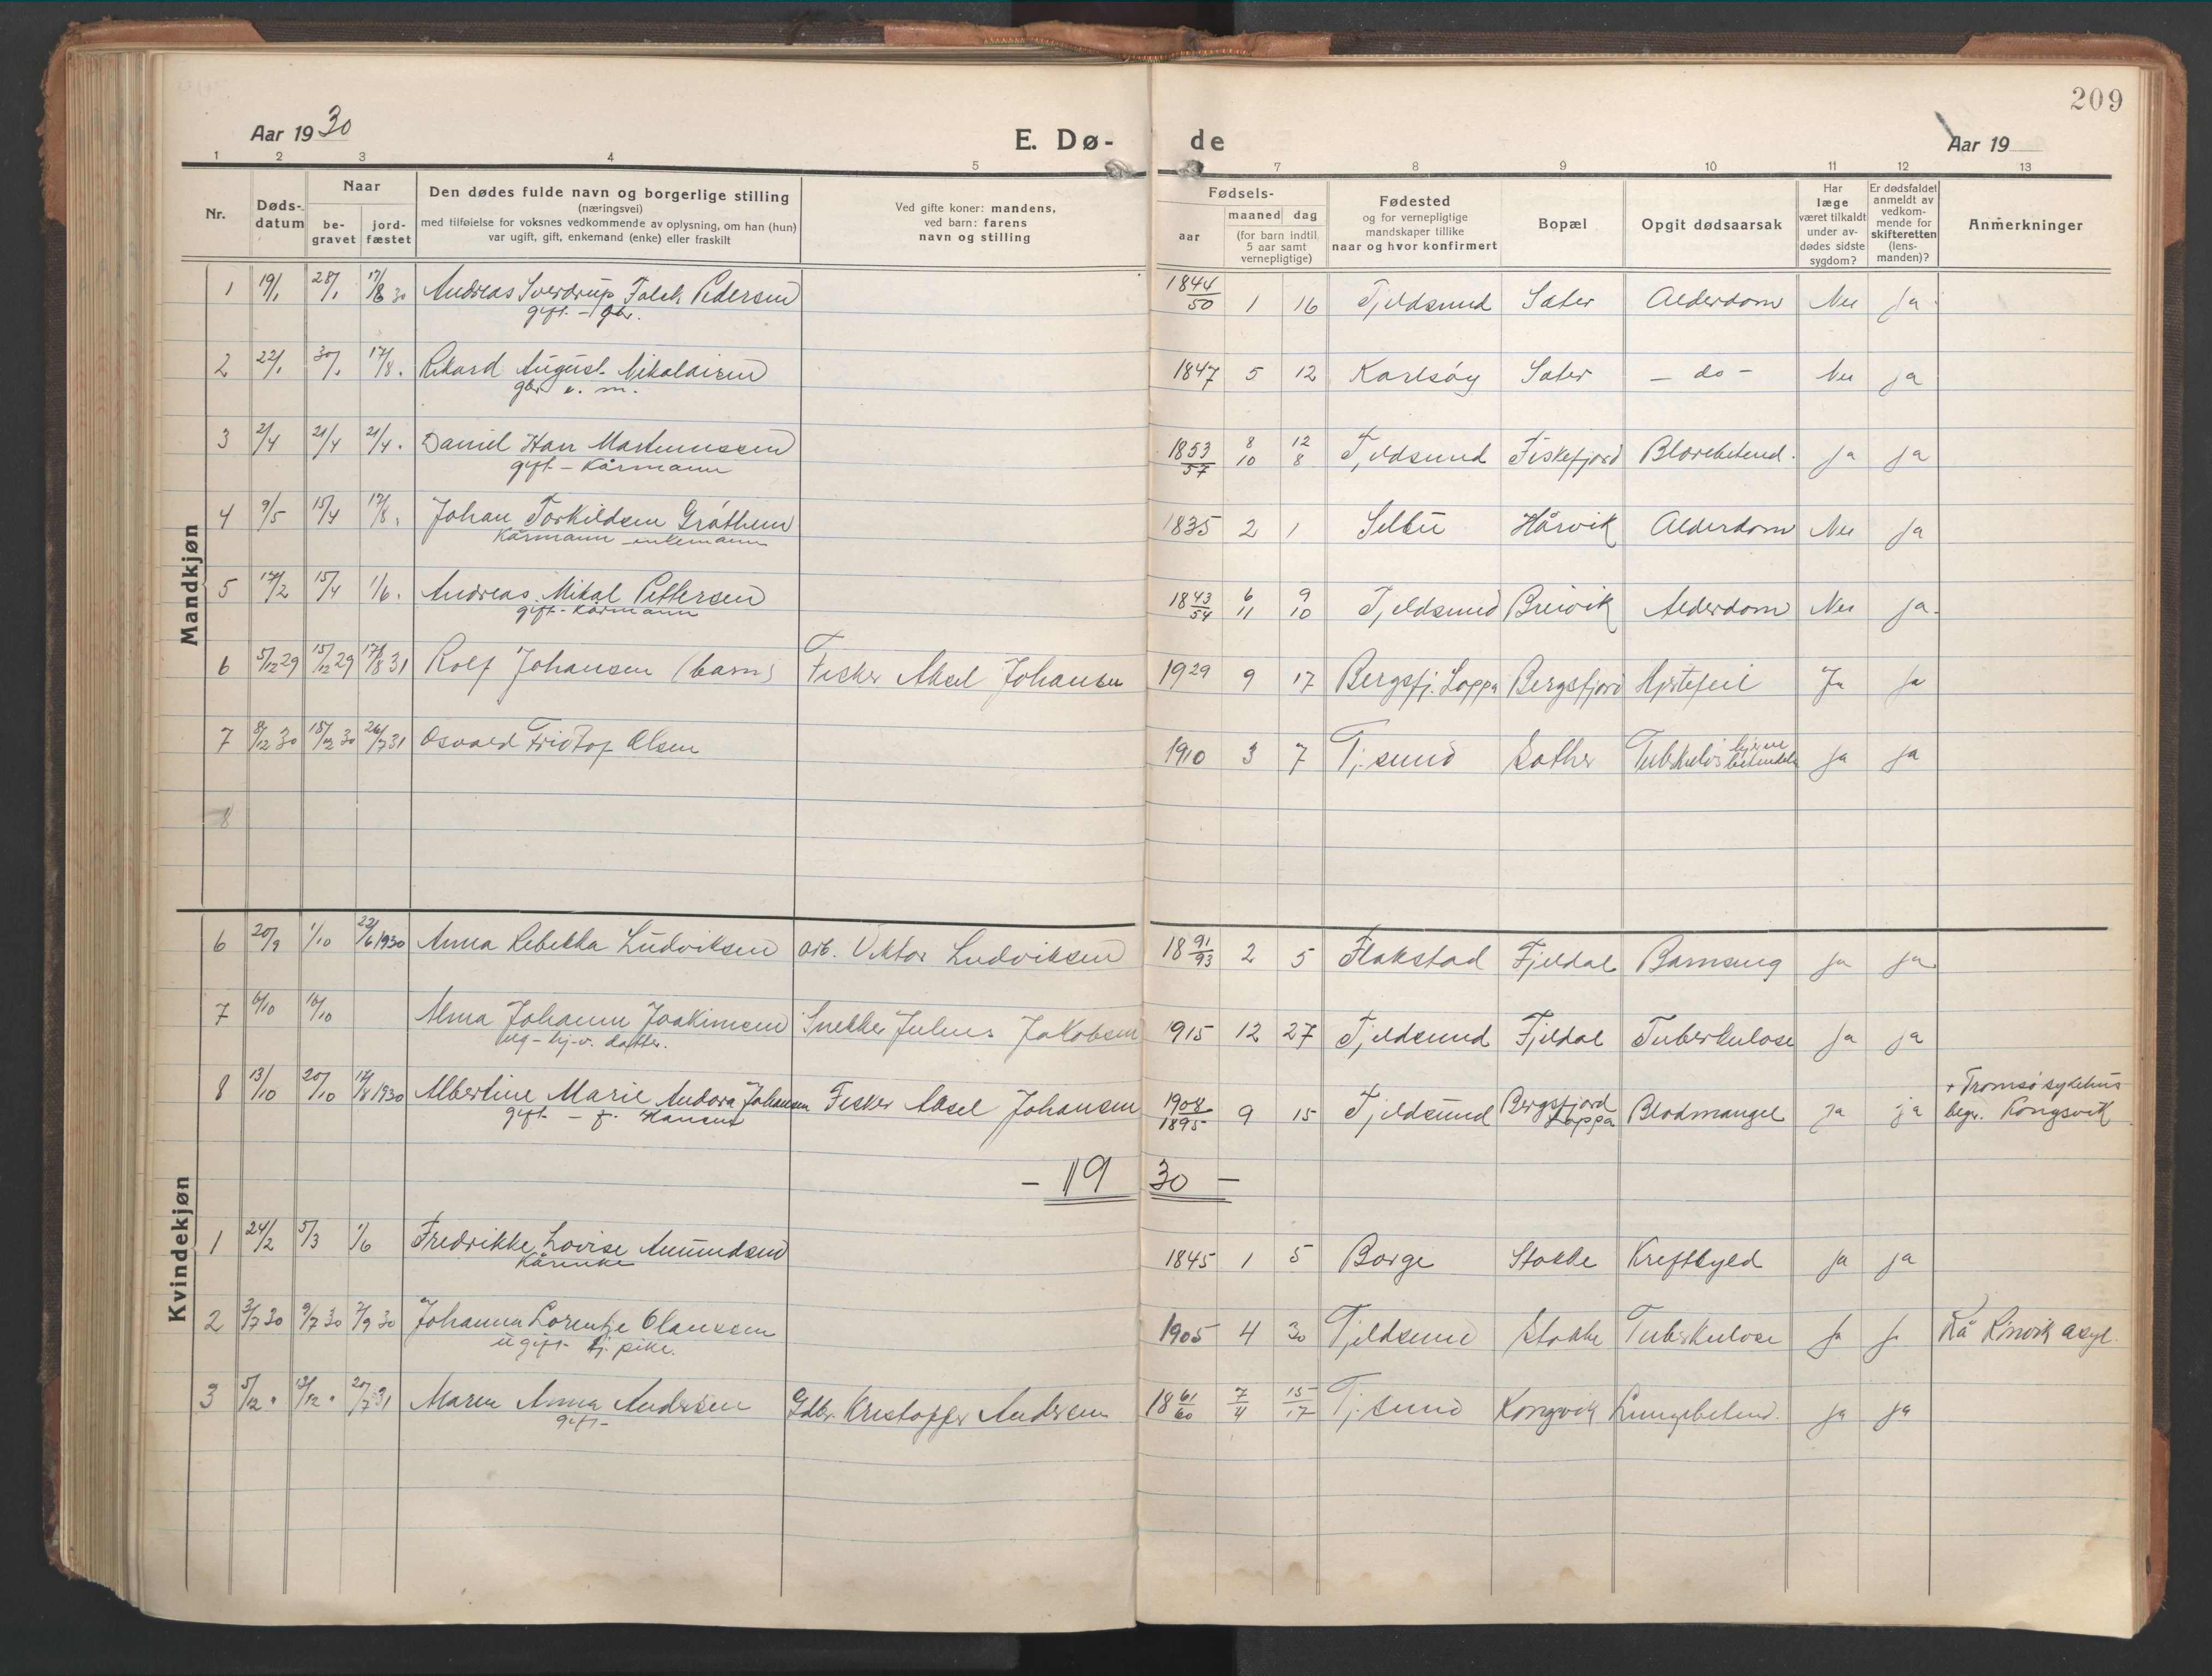 209
Aar 1930 E. Dø- de Aar 19
1 2 3 4 5 7 8 9 10 11 12 13
Nr. Døds-datum Naar be-gravet jord-fæstet Den dødes fulde navn og borgerlige stilling (næringsvei) med tilføielse for voksnes vedkommende av oplysning, om han (hun) var ugift, gift, enkemand (enke) eller fraskilt Ved gifte koner: mandens, ved barn: farens navn og stilling Fødsels- aar maaned dag (for barn indtil 5 aar samt vernepligtige) Fødested og for vernepligtige mandskaper tillike naar og hvor konfirmert Bopæl Opgit dødsaarsak Har læge været tilkaldt under av-dødes sidste sygdom? Er dødsfaldet anmeldt av vedkom-mende for skifteretten (lens-manden)? Anmerkninger
Mandkjøn
1 19/1 28/1 17/8 30 Andreas Sverdrup Falch Pedersen 1844/50 1 16 Tjeldsund Sater Alderdom Nei Ja
gift - gbr.
2 22/1 30/1 17/8. Rikard August Nikolaisen 1847 5 12 Karlsøy Sater - do - Nei ja
gbr e. m.
3 2/4 21/4 21/4. Daniel Han Martinussen 1853/57 8/10 12/8 Tjeldsund Fiskefjord Blærebetend. Ja Ja
gift - Kårmann
4 9/5 15/4 17/8. Johan Torkildsen Gróthem 1835 2 1 Selbu Hårvik Alderdom Nei Ja
Kårmann enkemann
5 17/2 15/4 1/6. Andreas Mikal Pettersen 1843/54 6/11 9/10 Tjeldsund Breivik Alderdom Nei ja.
gift - Kårmann
6 5/12 29 15/12 29 17/8 31 Rolf Johansen (barn) Fisker Aksel Johansen 1929 9 17 Bergsfj. Loppa Bergsfjord Hjertefeil Ja Ja
7 8/12 30 18/12 30 26/7 31 Osvald Fridtof Olsen 1910 3 7 Tj.sund Sather Tuberkuløs hjernebetendels Ja Ja
8
Kvindekjøn
6 20/9 1/10 22/6 1930 Anna Rebekka Ludviksen arb. Viktor Ludviksen 1891/93 2 5 Flakstad Fjeldal Barnseng Ja Ja
7 6/10 16/10 Alma Johanne Joakimsen Snekker Julius Jakobsen 1915 12 27 Tjeldsund Fjeldal Tuberkulose Ja ja
ug - hj.v. datter.
8 13/10 20/10 17/8 1930 Albertine Marie Andora Johansen Fisker Aksel Johansen 1908/1895 9 15 Tjeldsund Bergsfjord Loppa Blodmangel Ja ja + Tromsø sykehus
gift - f. Hansen begr. Kongsvik
- 1930 -
1 24/2 5/3 1/6 Fredrikke Lovise Amundsen 1845 1 5 Borge Stokke Kreftbyld Ja ja
Kårenke
2 3/7 30 9/7 30 7/9 30 Johanna Lorentze Olaussen 1905 4 30 Tjeldsund Stokke Tuberkulose Ja Ja På Rinvik asyl.
ugift tj. pike.
3 5/12 . 13/12 . 20/7 31 Maren Anna Andersen Gdbr. Kristoffer Andersen 1861/60 7/4 15/17 Tj.sund Kongsvik Lungebetend. Ja Ja
gift